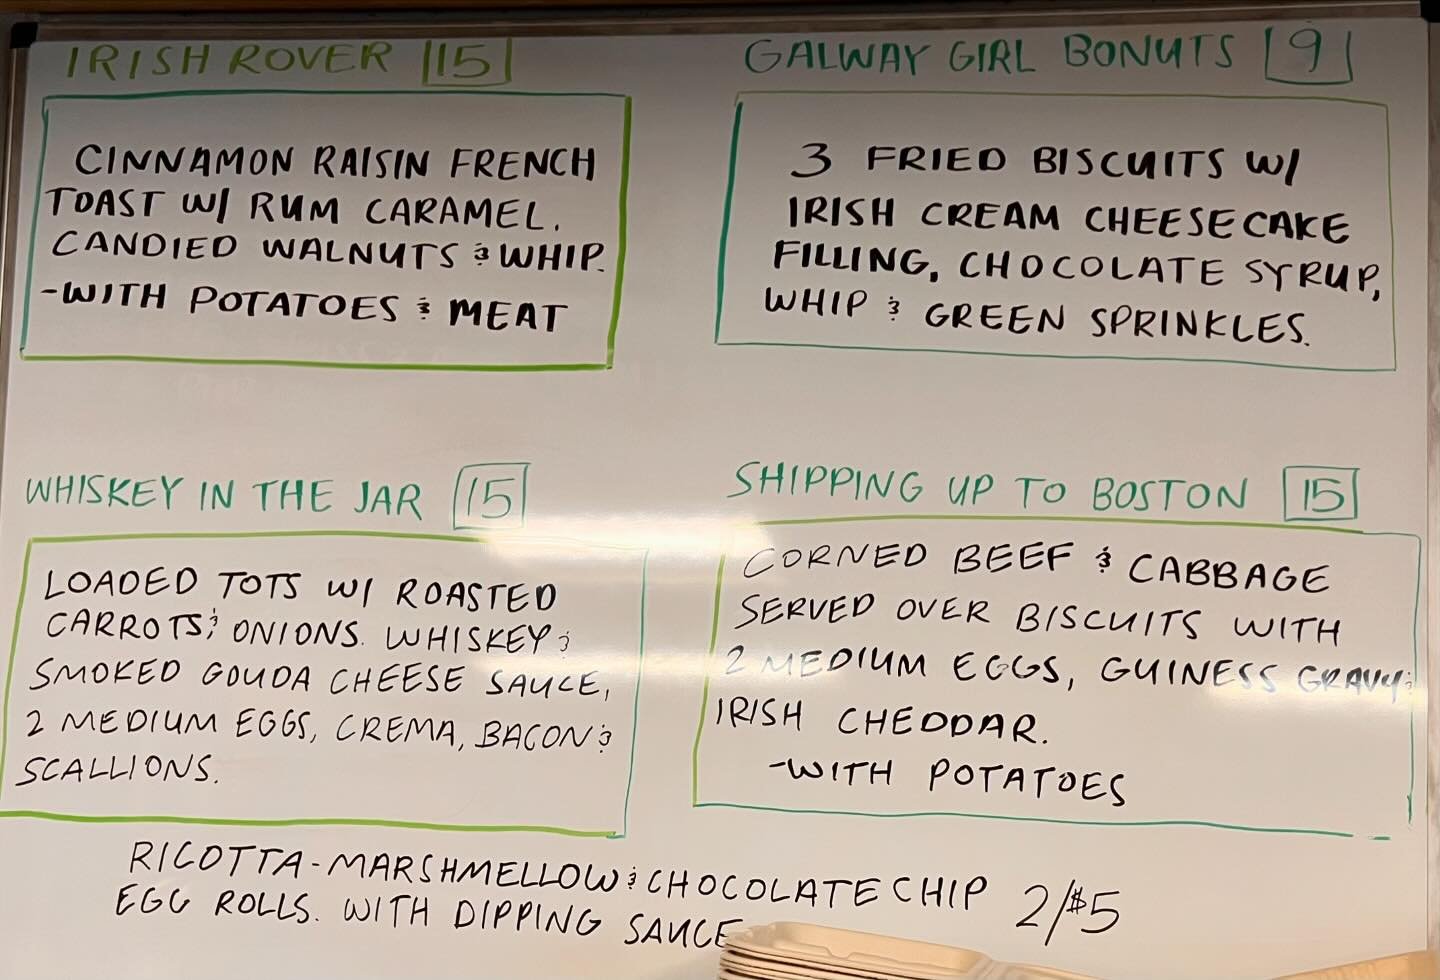 IRISH ROVER 15
CINNAMON RAISIN FRENCH
TOAST W/ RUM CARAMEL.
CANDIED WALNUTS & WHIP.
-WITH POTATOES & MEAT
GALWAY GIRL BONUTS 9
3 FRIED BISCUITS W/
IRISH CREAM CHEESECAKE
FILLING, CHOCOLATE SYRUP,
WHIP & GREEN SPRINKLES.
WHISKEY IN THE JAR 15
LOADED TOTS W/ ROASTED
CARROTS & ONIONS. WHISKEY &
SMOKED GOUDA CHEESE SAUCE,
2 MEDIUM EGGS, CREMA, BACON &
SCALLIONS.
SHIPPING UP TO BOSTON 15
CORNED BEEF & CABBAGE
SERVED OVER BISCUITS WITH
2 MEDIUM EGGS, GUINESS GRAVY &
IRISH CHEDDAR.
-WITH POTATOES
RICOTTA-MARSHMELLOW & CHOCOLATE CHIP
EGG ROLLS. WITH DIPPING SAUCE 2/$5